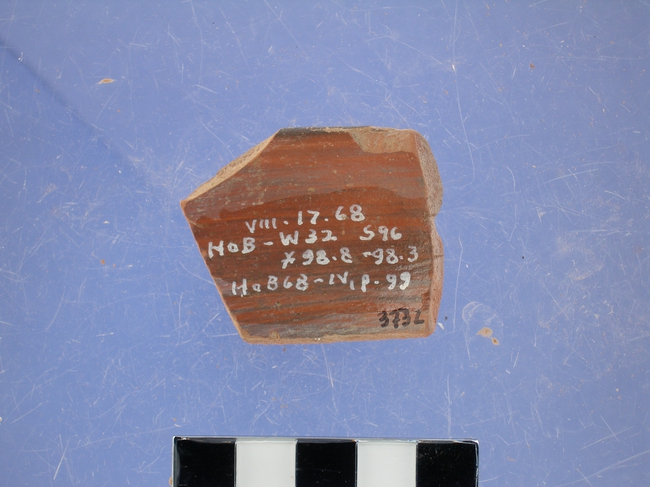 VIII.17.68
HoB-W32 S96
*98.8-98.3
HoB68-IV, p.99
3732